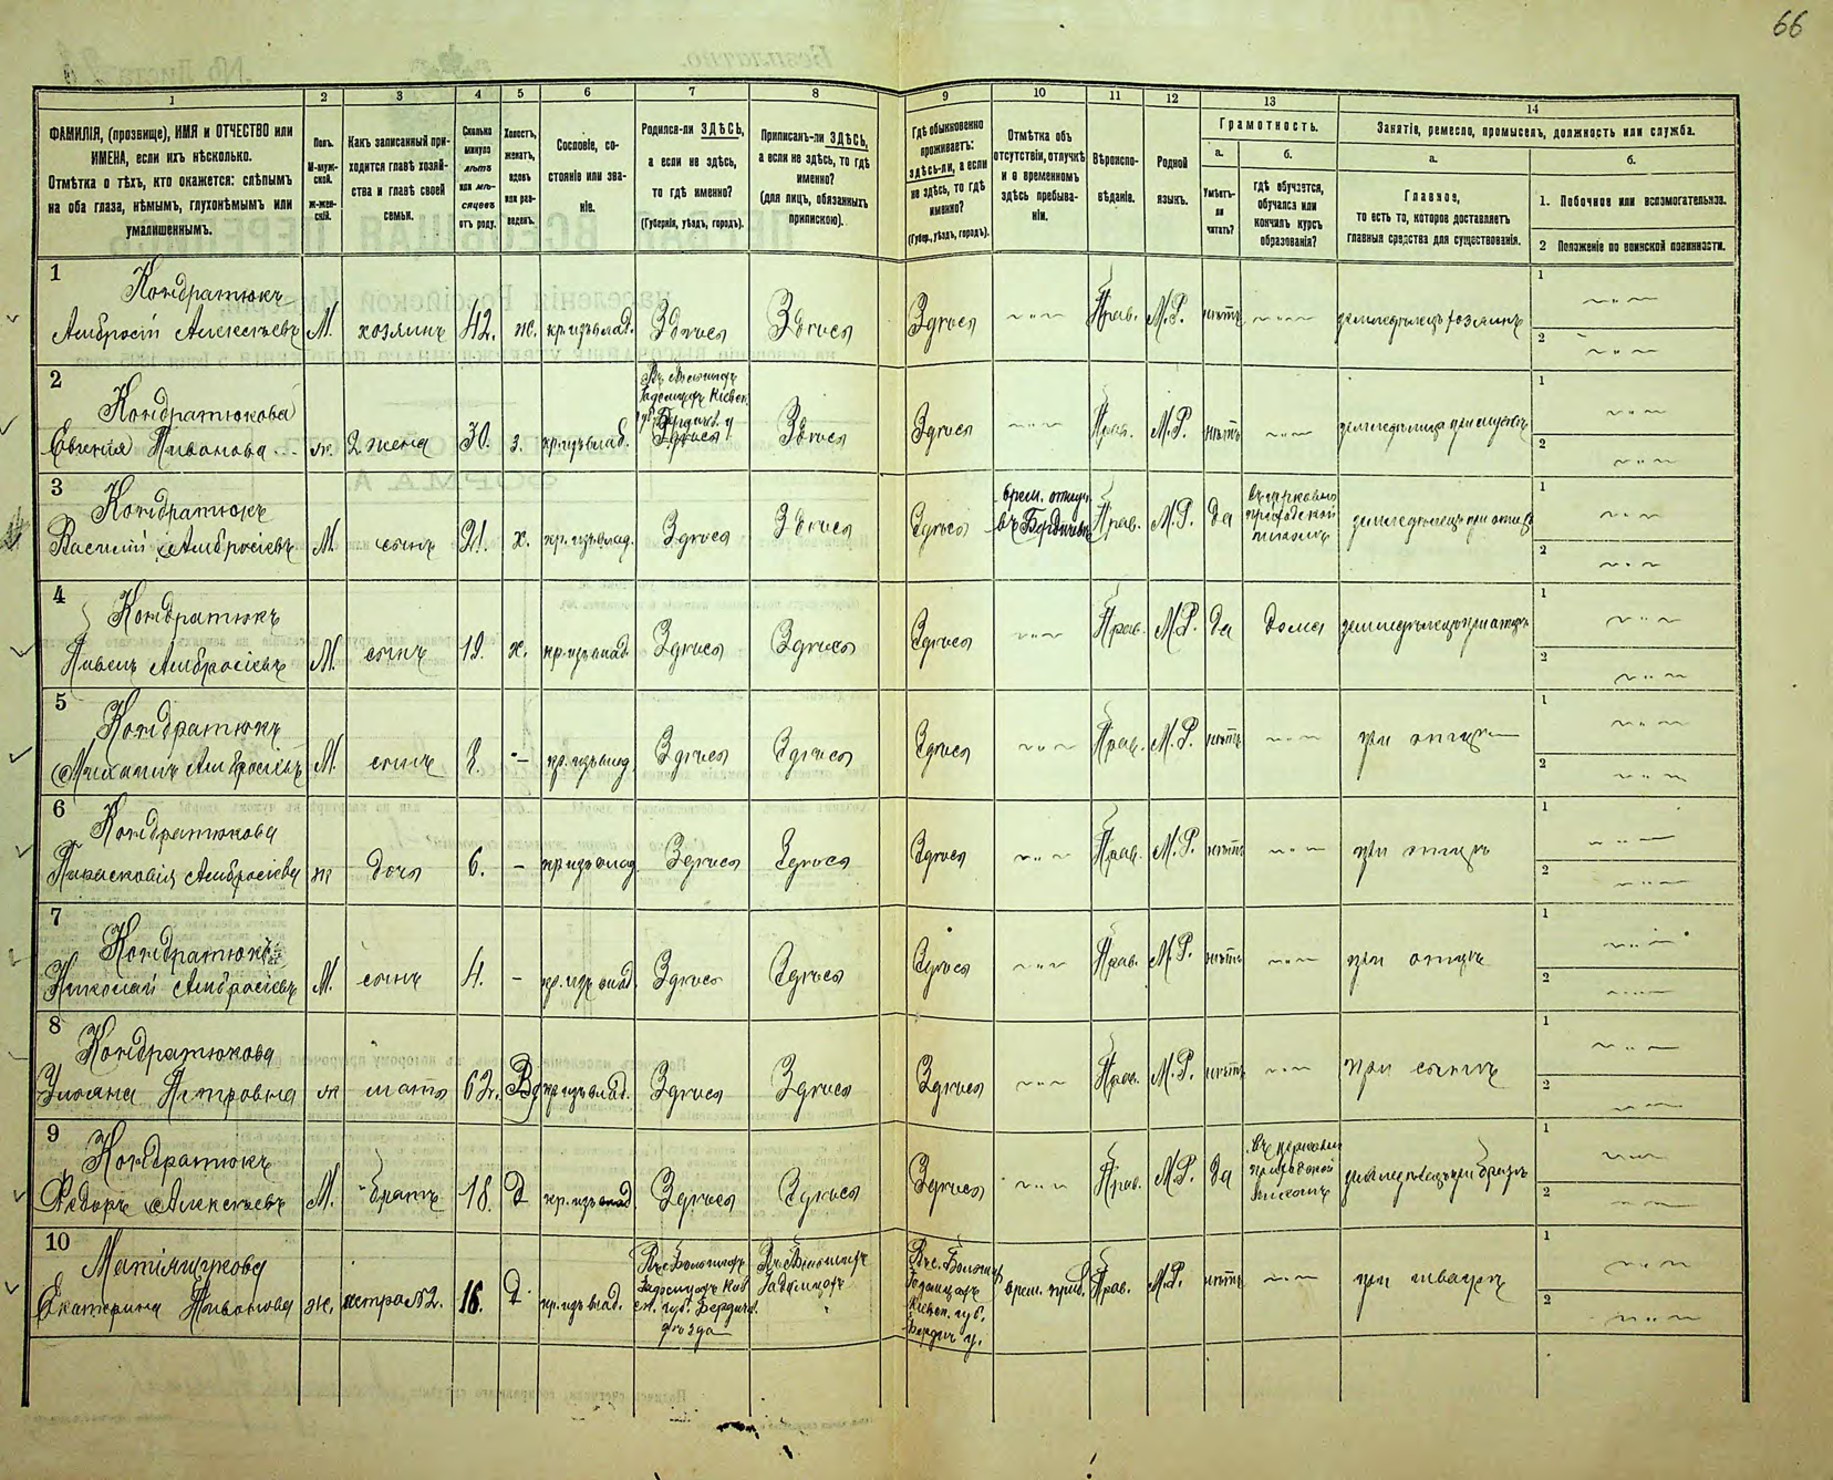 66
1 2 3 4 5 6 7 8 9 10 11 12 13 14
ФАМИЛІЯ, (прозвище), ИМЯ и ОТЧЕСТВО или
ИМЕНА, если ихъ нѣсколько.
Отмѣтка о тѣхъ, кто окажется: слѣпымъ
на оба глаза, нѣмымъ, глухонѣмымъ или
умалишеннымъ.
Полъ.
М-муж-
ской.
ж-жен-
скій.
Какъ записанный при-
ходится главѣ хозяй-
ства и главѣ своей
семьи.
Сколько
минуло
лѣтъ
или мѣ-
сяцевъ
отъ роду.
Холостъ,
женатъ,
вдовъ
или раз-
веденъ.
Сословіе, со-
стояніе или зва-
ніе.
Родился-ли ЗДѢСЬ,
а если не здѣсь,
то гдѣ именно?
(Губернія, уѣздъ, городъ).
Приписанъ-ли ЗДѢСЬ,
а если не здѣсь, то гдѣ
именно?
(для лицъ, обязанныхъ
припискою).
Гдѣ обыкновенно
проживаетъ:
здѣсь-ли, а если
не здѣсь, то гдѣ
именно?
(Губер., уѣздъ, городъ).
Отмѣтка объ
отсутствіи, отлучкѣ
и о временномъ
здѣсь пребыва-
ніи.
Вѣроиспо-
вѣданіе.
Родной
языкъ.
Грамотность.
а.
Умѣетъ-
ли
читать?
б.
гдѣ обучается,
обучался или
кончилъ курсъ
образованія?
Занятіе, ремесло, промыселъ, должность или служба.
а.
Главное,
то есть то, которое доставляетъ
главныя средства для существованія.
б.
1. Побочное или вспомогательное.
2 Положеніе по воинской повинности.
1
Кондратюкъ
Амбросій Алексѣевъ М. хозяинъ 42. ж. кр. изъ влад. Здѣсь Здѣсь Здѣсь Прав. М.Р. нѣтъ земледѣлецъ хозяинъ
1
2
2
Кондратюкова
Евгенія Иванова ж. 2 жена 30. з. кр. изъ влад. Здѣсь Здѣсь Здѣсь Прав. М.Р. нѣтъ
1
2
3
Кондратюкъ
Василій Амбросіевъ М. сынъ 21. х. кр. изъ влад. Здѣсь Здѣсь Здѣсь
врем. отлуч.
въ Бердичевъ
Прав. М.Р. да
въ церковно
приходской
школѣ
земледѣлецъ при отцѣ
1
2
4
Кондратюкъ
Амбросіевъ М. сынъ 19. х. кр. изъ влад. Здѣсь Здѣсь Здѣсь Прав. М.Р. да дома земледѣлецъ при отцѣ
1
2
5
Кондратюкъ
Михаилъ Амбросіевъ М. сынъ 8. – кр. изъ влад. Здѣсь Здѣсь Здѣсь Прав. М.Р. нѣтъ при отцѣ
1
2
6
Кондратюкова
Параскевія Амбросіева ж дочь 6. – кр. изъ влад. Здѣсь Здѣсь Здѣсь Прав. М.Р. нѣтъ при отцѣ
1
2
7
Кондратюкъ
Николай Амбросіевъ М. сынъ 4. – кр. изъ влад. Здѣсь Здѣсь Здѣсь Прав. М.Р. нѣтъ при отцѣ
1
2
8
Кондратюкова
Ульяна Петровна ж мать 62. Вд кр. изъ влад. Здѣсь Здѣсь Здѣсь Прав. М.Р. нѣтъ при сынѣ
1
2
9
Кондратюкъ
Федоръ Алексѣевъ М. братъ 18. Х кр. изъ влад Здѣсь Здѣсь Здѣсь Прав. М.Р. да
въ церковно
приходской
школѣ
земледѣлецъ при братѣ
1
2
10
Екатерина Иванова ж. сестра №2. 16. кр. изъ влад. врем. преб. Прав. М.Р. нѣтъ
Кіевск. губ.
Бердич. у.
1
2